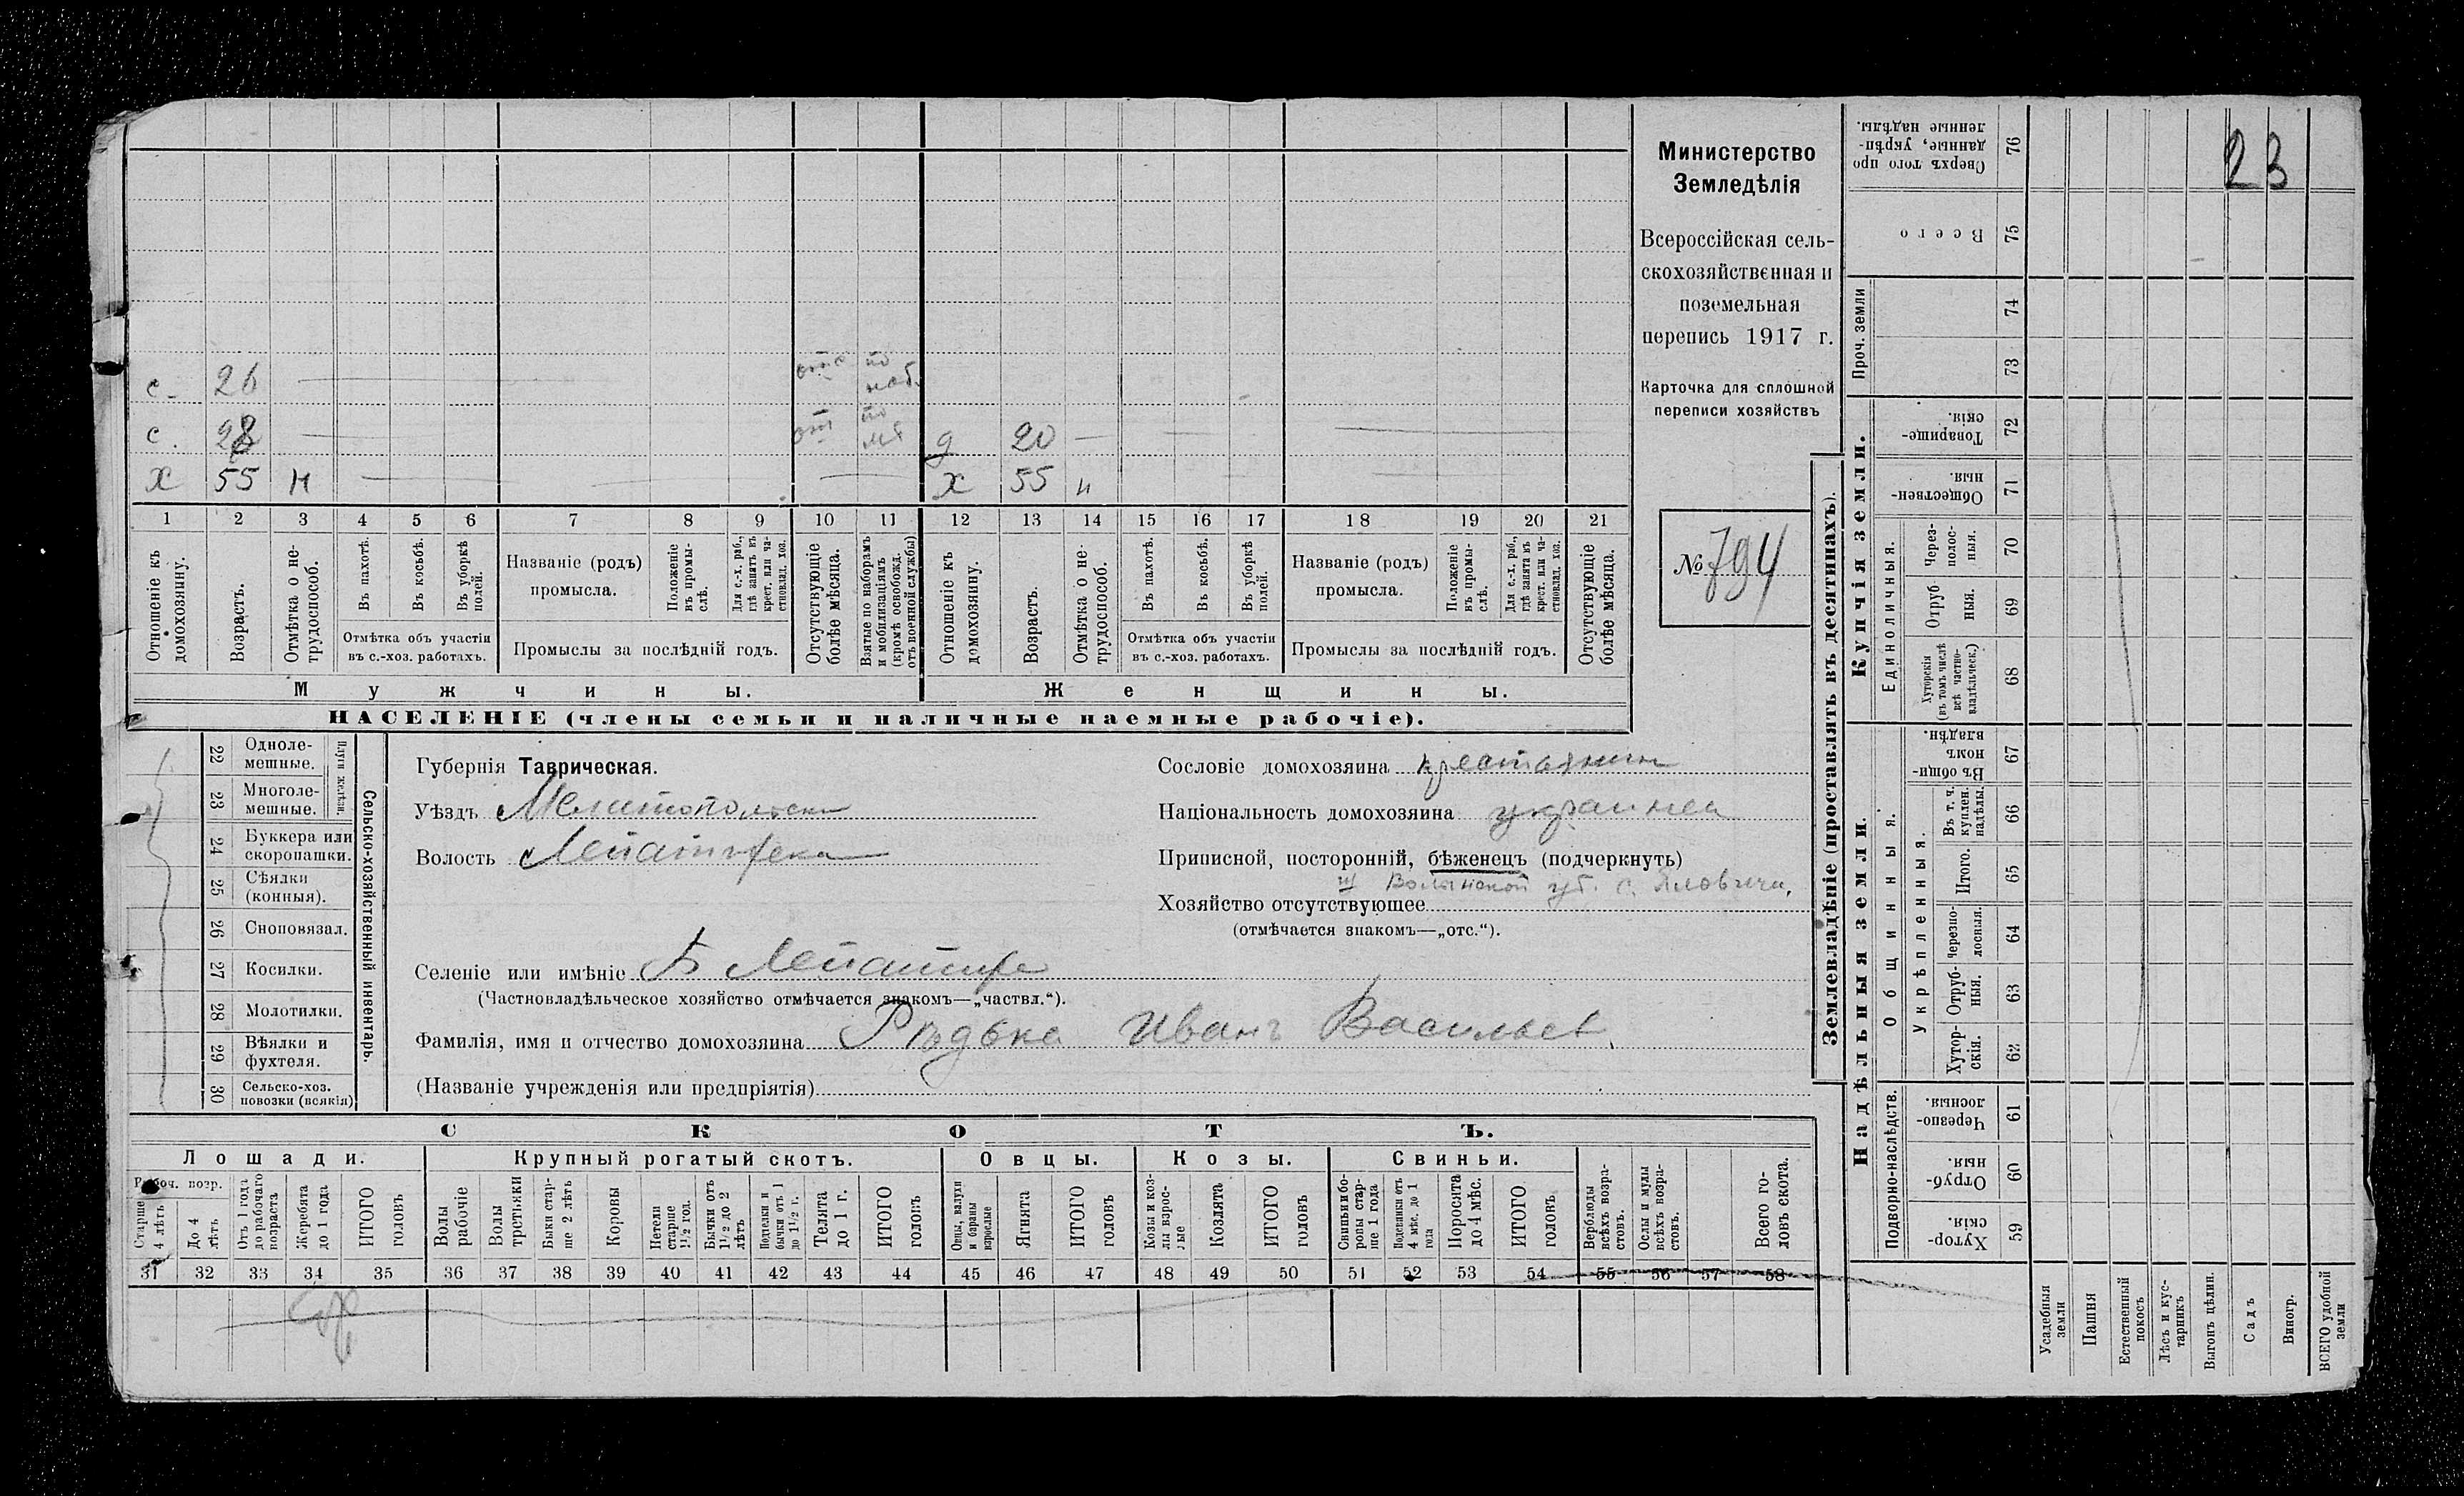 Министерство
Земледѣлія
Всероссійская сель-
скохозяйственная и
поземельная
перепись 1917 г.
Карточка для сплошной
переписи хозяйствъ
№ 794
23
с. 26 отс по наб.
с. 28 от по д 20
х 55 н х 55 н
1 2 3 4 5 6 7 8 9 10 11 12 13 14 15 16 17 18 19 20 21
Отношеніе къ домохозяину.
Возрастъ.
Отмѣтка о не-трудоспособ.
Въ пахотѣ.
Въ косьбѣ.
Въ уборкѣ полей.
Отмѣтка объ участіи
въ с.-хоз. работахъ.
Названіе (родъ)
промысла.
Положеніе въ промы-слѣ.
Для с.-х. раб., гдѣ занятъ въ крест. или ча-стновлад. хоз.
Промыслы за послѣдній годъ.
Отсутствующіе болѣе мѣсяца.
Взятые по наборамъ и мобилизаціямъ (кромѣ освобожд. отъ военной службы)
Отношеніе къ домохозяину.
Возрастъ.
Отмѣтка о не-трудоспособ.
Въ пахотѣ.
Въ косьбѣ.
Въ уборкѣ полей.
Отмѣтка объ участіи
въ с.-хоз. работахъ.
Названіе (родъ)
промысла.
Положеніе въ промы-слѣ.
Для с.-х. раб., гдѣ занята въ крест. или ча-стновлад. хоз.
Промыслы за послѣдній годъ.
Отсутствующіе болѣе мѣсяца.
Мужчины.
Женщины.
НАСЕЛЕНІЕ (члены семьи и наличные наемные рабочіе).
Сельско-хозяйственный инвентарь.
Плуги желѣзн.
22 Одноле-мешные.
23 Многоле-мешные.
24 Буккера или скоропашки.
25 Сѣялки (конныя).
26 Сноповязал.
27 Косилки.
28 Молотилки.
29 Вѣялки и фухтеля.
30 Сельско-хоз. повозки (всякія)
Губернія Таврическая.
Уѣздъ Мелитопольски
Волость
Сословіе домохозяина крестьянин
Національность домохозяина украинец
Приписной, посторонній, бѣженецъ (подчеркнуть)
Волынской губ. с. Яловичи,
Хозяйство отсутствующее
(отмѣчается знакомъ—„отс.“).
Селеніе или имѣніе Б Лепатиха
(Частновладѣльческое хозяйство отмѣчается знакомъ—„частвл.“).
Фамилія, имя и отчество домохозяина Рѣдька Иванъ Васильев.
(Названіе учрежденія или предпріятія)
СКОТЪ.
Лошади.
Крупный рогатый скотъ.
Овцы.
Козы.
Свиньи.
Рабоч. возр.
Старше 4 лѣтъ
До 4 лѣтъ
Отъ 1 года до рабочаго возраста
Жеребята до 1 года
ИТОГО головъ
Волы рабочіе
Волы третьяки
Быки стар-ше 2 лѣтъ
Коровы
Нетели старше 1½ год.
Бычки отъ 1½ до 2 лѣтъ
Подтелки и бычки отъ 1 до 1½ г.
Телята до 1 г.
ИТОГО головъ
Овцы, валухи и бараны взрослые
Ягнята
ИТОГО головъ
Козы и коз-лы взрос-лые
Козлята
ИТОГО головъ
Свиньи и бо-ровы стар-ше 1 года
Подсвинки отъ 4 мѣс. до 1 года
Поросята до 4 мѣс.
ИТОГО головъ
Верблюды всѣхъ возра-стовъ.
Ослы и мулы всѣхъ возра-стовъ.
Всего го-ловъ скота.
31 32 33 34 35 36 37 38 39 40 41 42 43 44 45 46 47 48 49 50 51 52 53 54 55 56 57 58
Землевладѣніе (проставлять въ десятинахъ).
Купчія земли.
Надѣльныя земли.
Сверхъ того про данные, укрѣп-ленные надѣлы. 76
Всего 75
Проч. земли
74
73
Товарище-скія. 72
Обществен-ныя. 71
Единоличныя.
Через-полос-ныя. 70
Отруб ныя. 69
Хуторскія (въ томъ числѣ всѣ частно-владѣльческ.) 68
Общинныя.
Въ общи-номъ владѣн. 67
Укрѣпленныя.
Въ т. ч. куплен. надѣлы. 66
Итого. 65
Черезпо-лосныя. 64
Отруб-ныя. 63
Хутор-скія. 62
Подворно-наслѣдств.
Черезпо-лосныя. 61
Отруб-ныя. 60
Хутор-скія. 59
Усадебныя земли
Пашня
Естественный покосъ
Лѣсъ и кус-тарникъ
Выгонъ цѣлин.
Садъ
Виногр.
ВСЕГО удобной земли